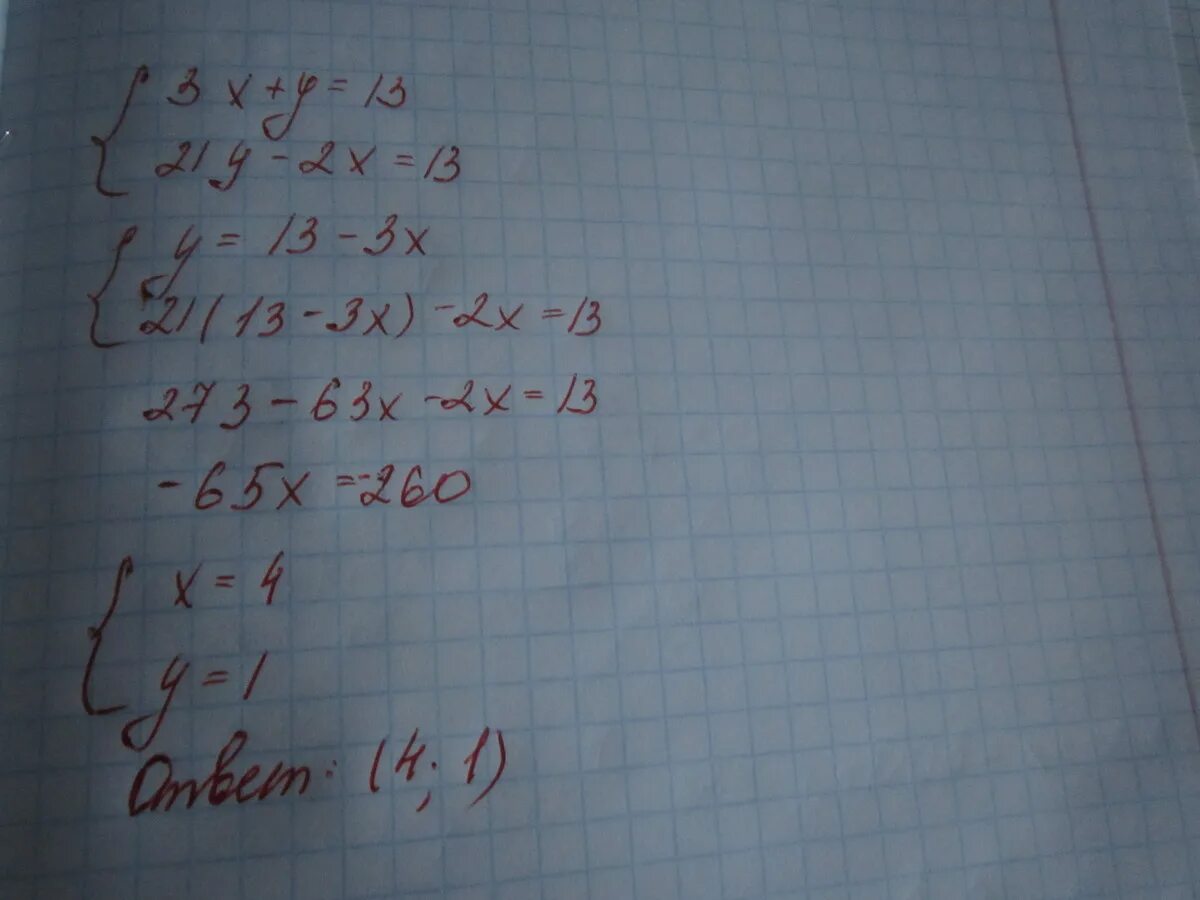 3x+y=13
21y-2x=13
y=13-3x
21(13-3x)-2x=13
273-63x-2x=13
-65x=-260
x=4
y=1
Ответ: (4; 1)